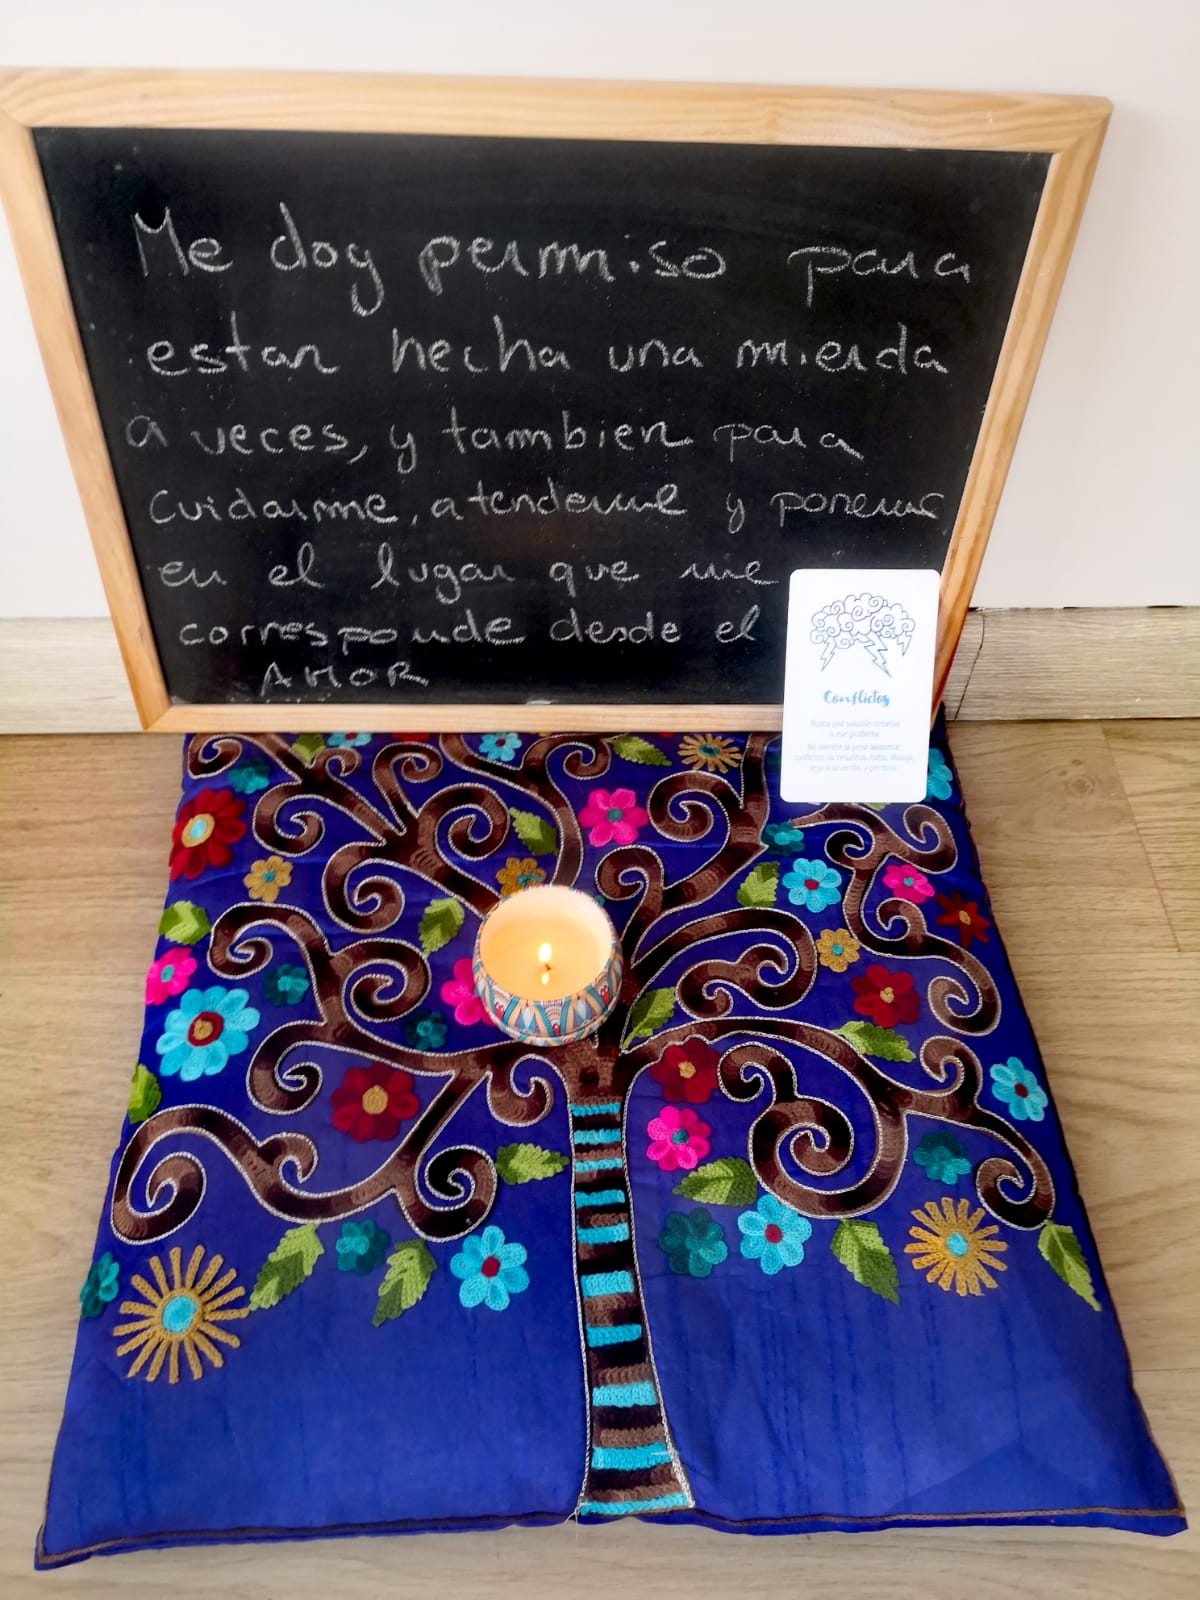 Me doy permiso para
estar hecha una mierda
a veces, y tambien para
cuidarme, atenderme y ponerme
en el lugar que me
corresponde desde el
AMOR
Conflictos
Busca una solución creativa
a ese problema.
No merece la pena almacenar
conflictos no resueltos. Habla, dialoga,
llega a acuerdos y perdona.